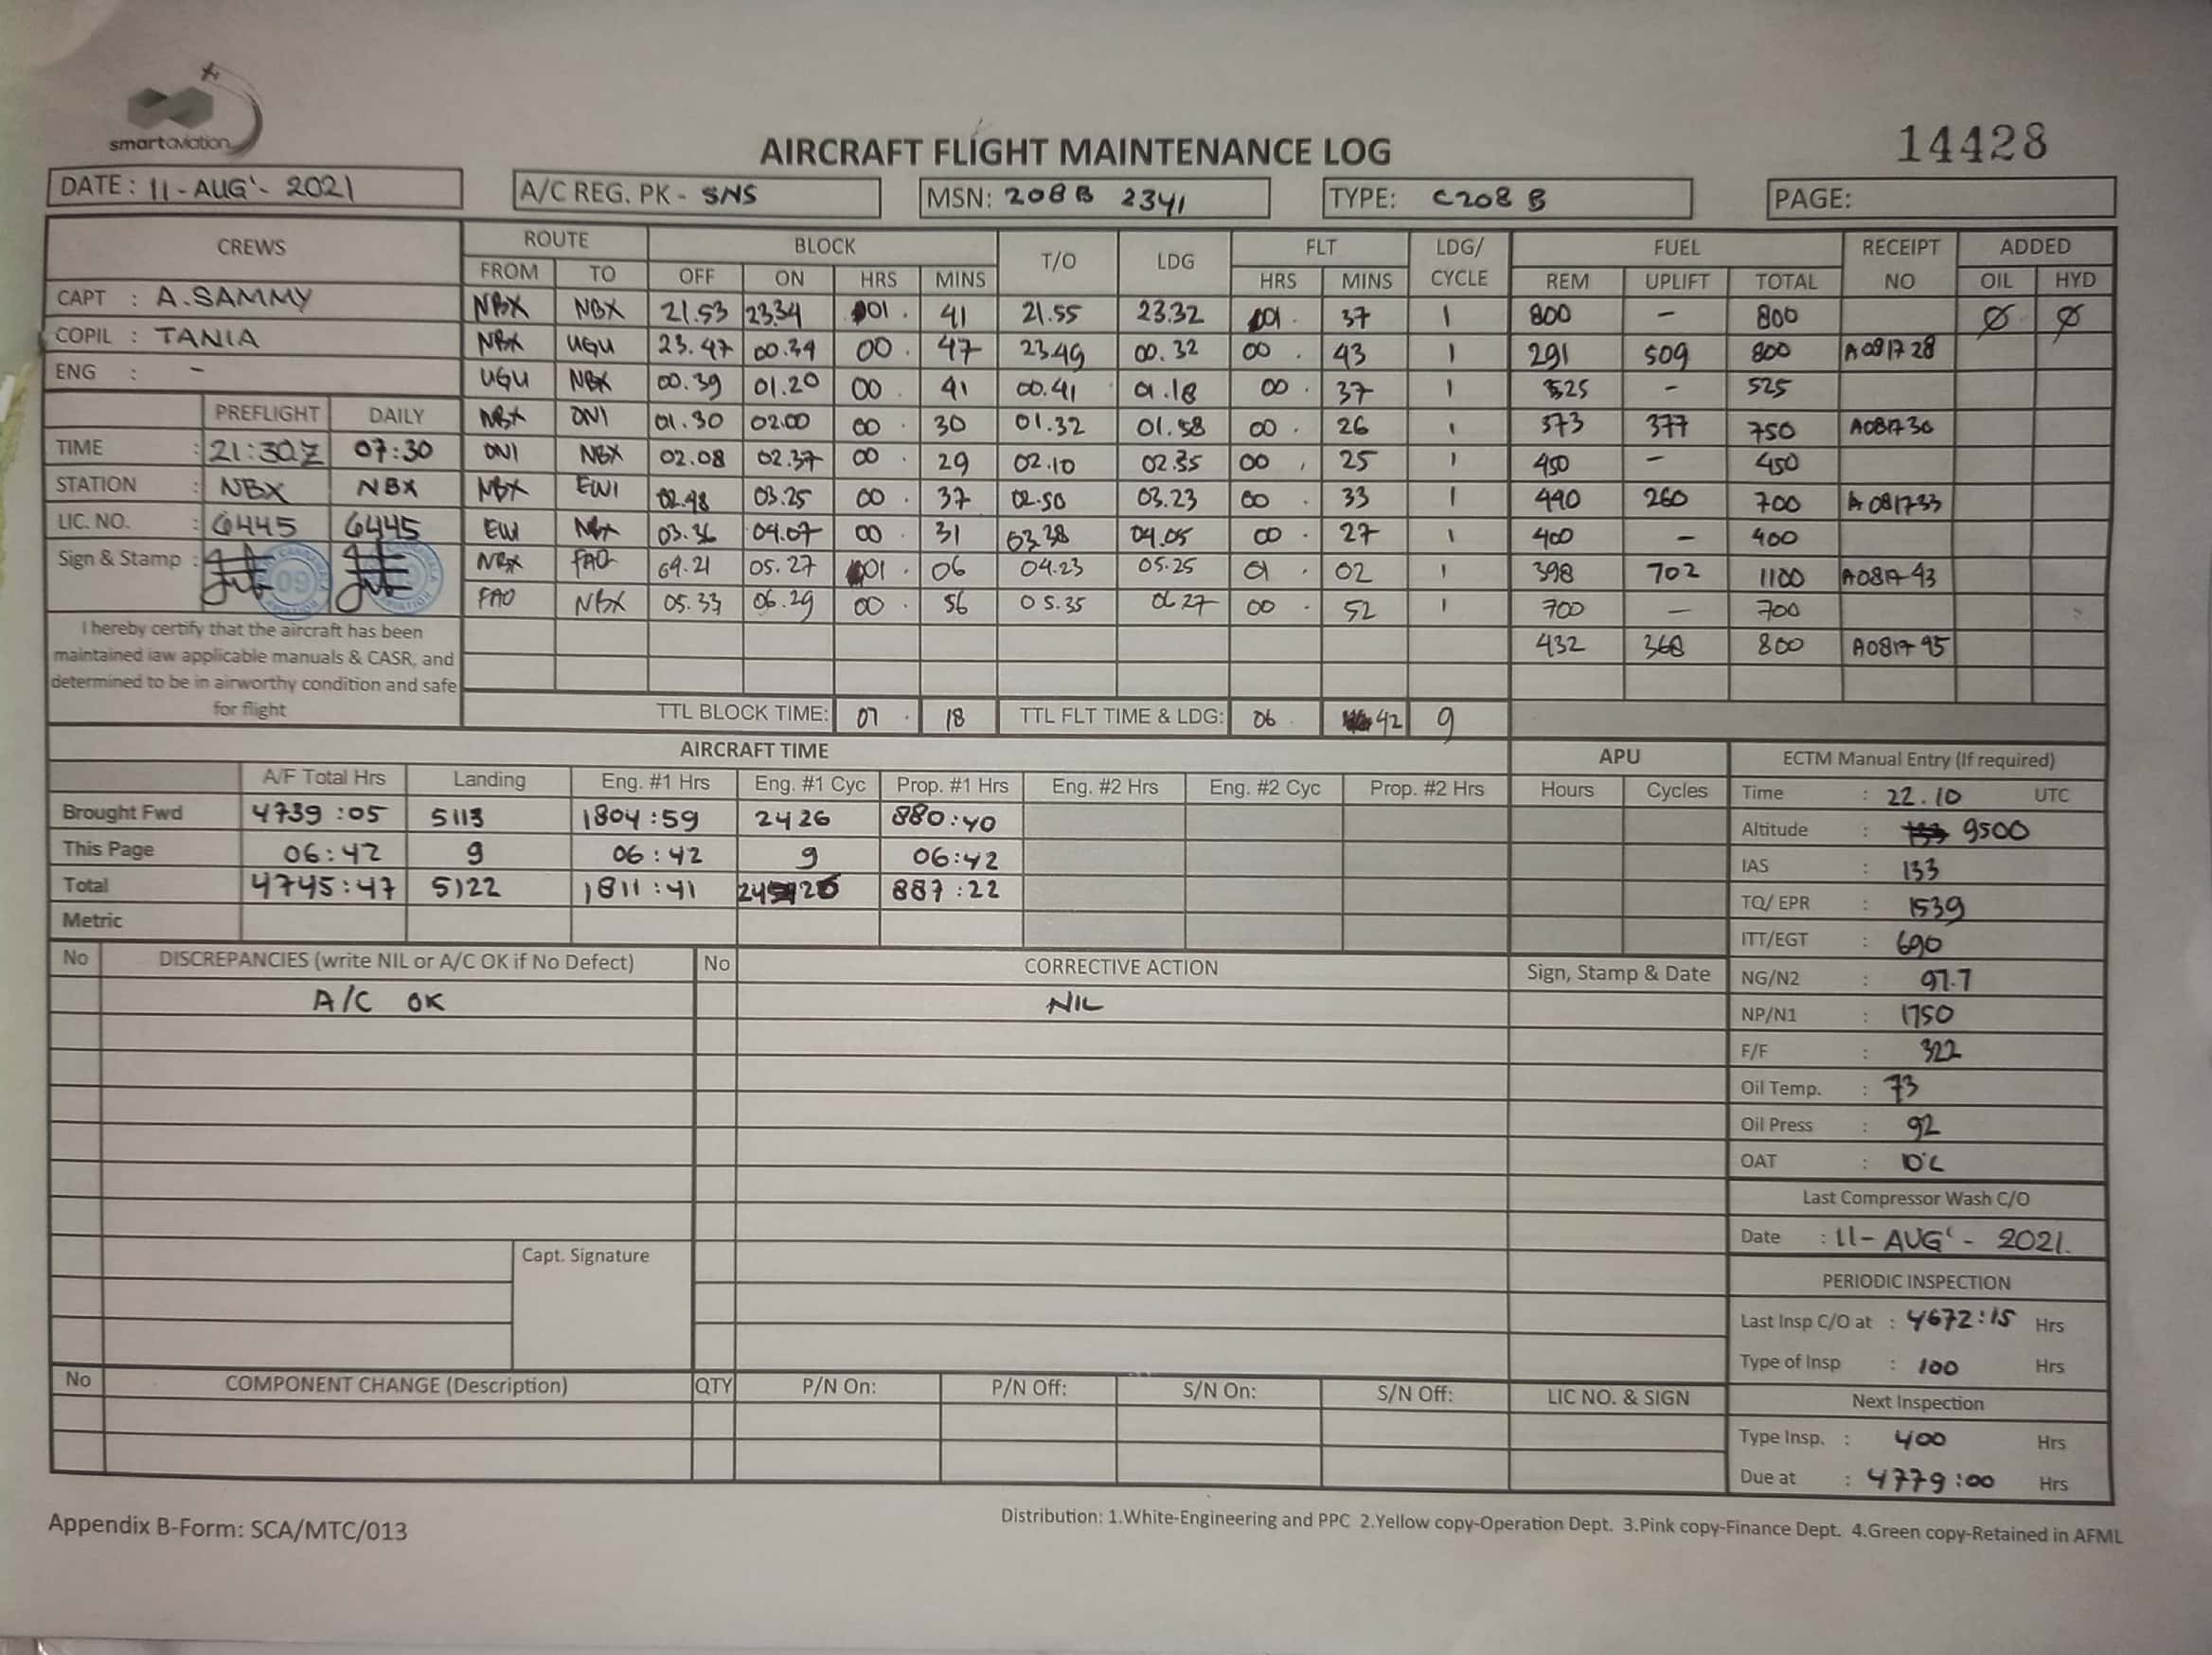 smartaviation
AIRCRAFT FLIGHT MAINTENANCE LOG
14428
DATE: 11-AUG'- 2021
A/C REG. PK - SNS
MSN: 208B 2341
TYPE: C208 B
PAGE:
CREWS ROUTE BLOCK T/O LDG FLT LDG/ CYCLE FUEL RECEIPT NO ADDED
FROM TO OFF ON HRS MINS HRS MINS REM UPLIFT TOTAL OIL HYD
CAPT : A.SAMMY
COPIL : TANIA
ENG : -
NBX NBX 21.53 23.34 01. 41 21.55 23.32 01. 37 1 800 - 800 Ø Ø
NBX UGU 23.47 00.34 00. 47 23.49 00.32 00. 43 1 291 509 800 A081728
UGU NBX 00.39 01.20 00. 41 00.41 01.18 00. 37 1 525 - 525
NBX ONI 01.30 02.00 00. 30 01.32 01.58 00. 26 1 373 377 750 A081730
ONI NBX 02.08 02.37 00. 29 02.10 02.35 00. 25 1 450 - 450
NBX EWI 02.48 03.25 00. 37 02.50 03.23 00. 33 1 440 260 700 A081733
EWI NBX 03.36 04.07 00. 31 03.38 04.05 00. 27 1 400 - 400
NBX FAO 04.21 05.27 01. 06 04.23 05.25 01. 02 1 398 702 1100 A081743
FAO NBX 05.33 06.29 00. 56 05.35 06.27 00. 52 1 700 - 700
432 368 800 A081795
PREFLIGHT DAILY
TIME : 21:30Z 07:30
STATION : NBX NBX
LIC. NO. : 6445 6445
Sign & Stamp :
09
I hereby certify that the aircraft has been
maintained iaw applicable manuals & CASR, and
determined to be in airworthy condition and safe
for flight
TTL BLOCK TIME: 07. 18 TTL FLT TIME & LDG: 06. 42 9
AIRCRAFT TIME
A/F Total Hrs Landing Eng. #1 Hrs Eng. #1 Cyc Prop. #1 Hrs Eng. #2 Hrs Eng. #2 Cyc Prop. #2 Hrs
Brought Fwd 4739:05 5113 1804:59 2426 880:40
This Page 06:42 9 06:42 9 06:42
Total 4745:47 5122 1811:41 887:22
Metric
APU
Hours Cycles
ECTM Manual Entry (If required)
Time : 22.10 UTC
Altitude : 9500
IAS : 133
TQ/ EPR : 1539
ITT/EGT : 690
NG/N2 : 97.7
NP/N1 : 1750
F/F : 322
Oil Temp. : 73
Oil Press : 92
OAT : 10°C
Last Compressor Wash C/O
Date : 11-AUG'- 2021.
PERIODIC INSPECTION
Last Insp C/O at : 4672:15 Hrs
Type of Insp : 100 Hrs
Next Inspection
Type Insp. : 400 Hrs
Due at : 4779:00 Hrs
No DISCREPANCIES (write NIL or A/C OK if No Defect) No CORRECTIVE ACTION Sign, Stamp & Date
A/C OK NIL
Capt. Signature
No COMPONENT CHANGE (Description) QTY P/N On: P/N Off: S/N On: S/N Off: LIC NO. & SIGN
Appendix B-Form: SCA/MTC/013
Distribution: 1.White-Engineering and PPC 2.Yellow copy-Operation Dept. 3.Pink copy-Finance Dept. 4.Green copy-Retained in AFML